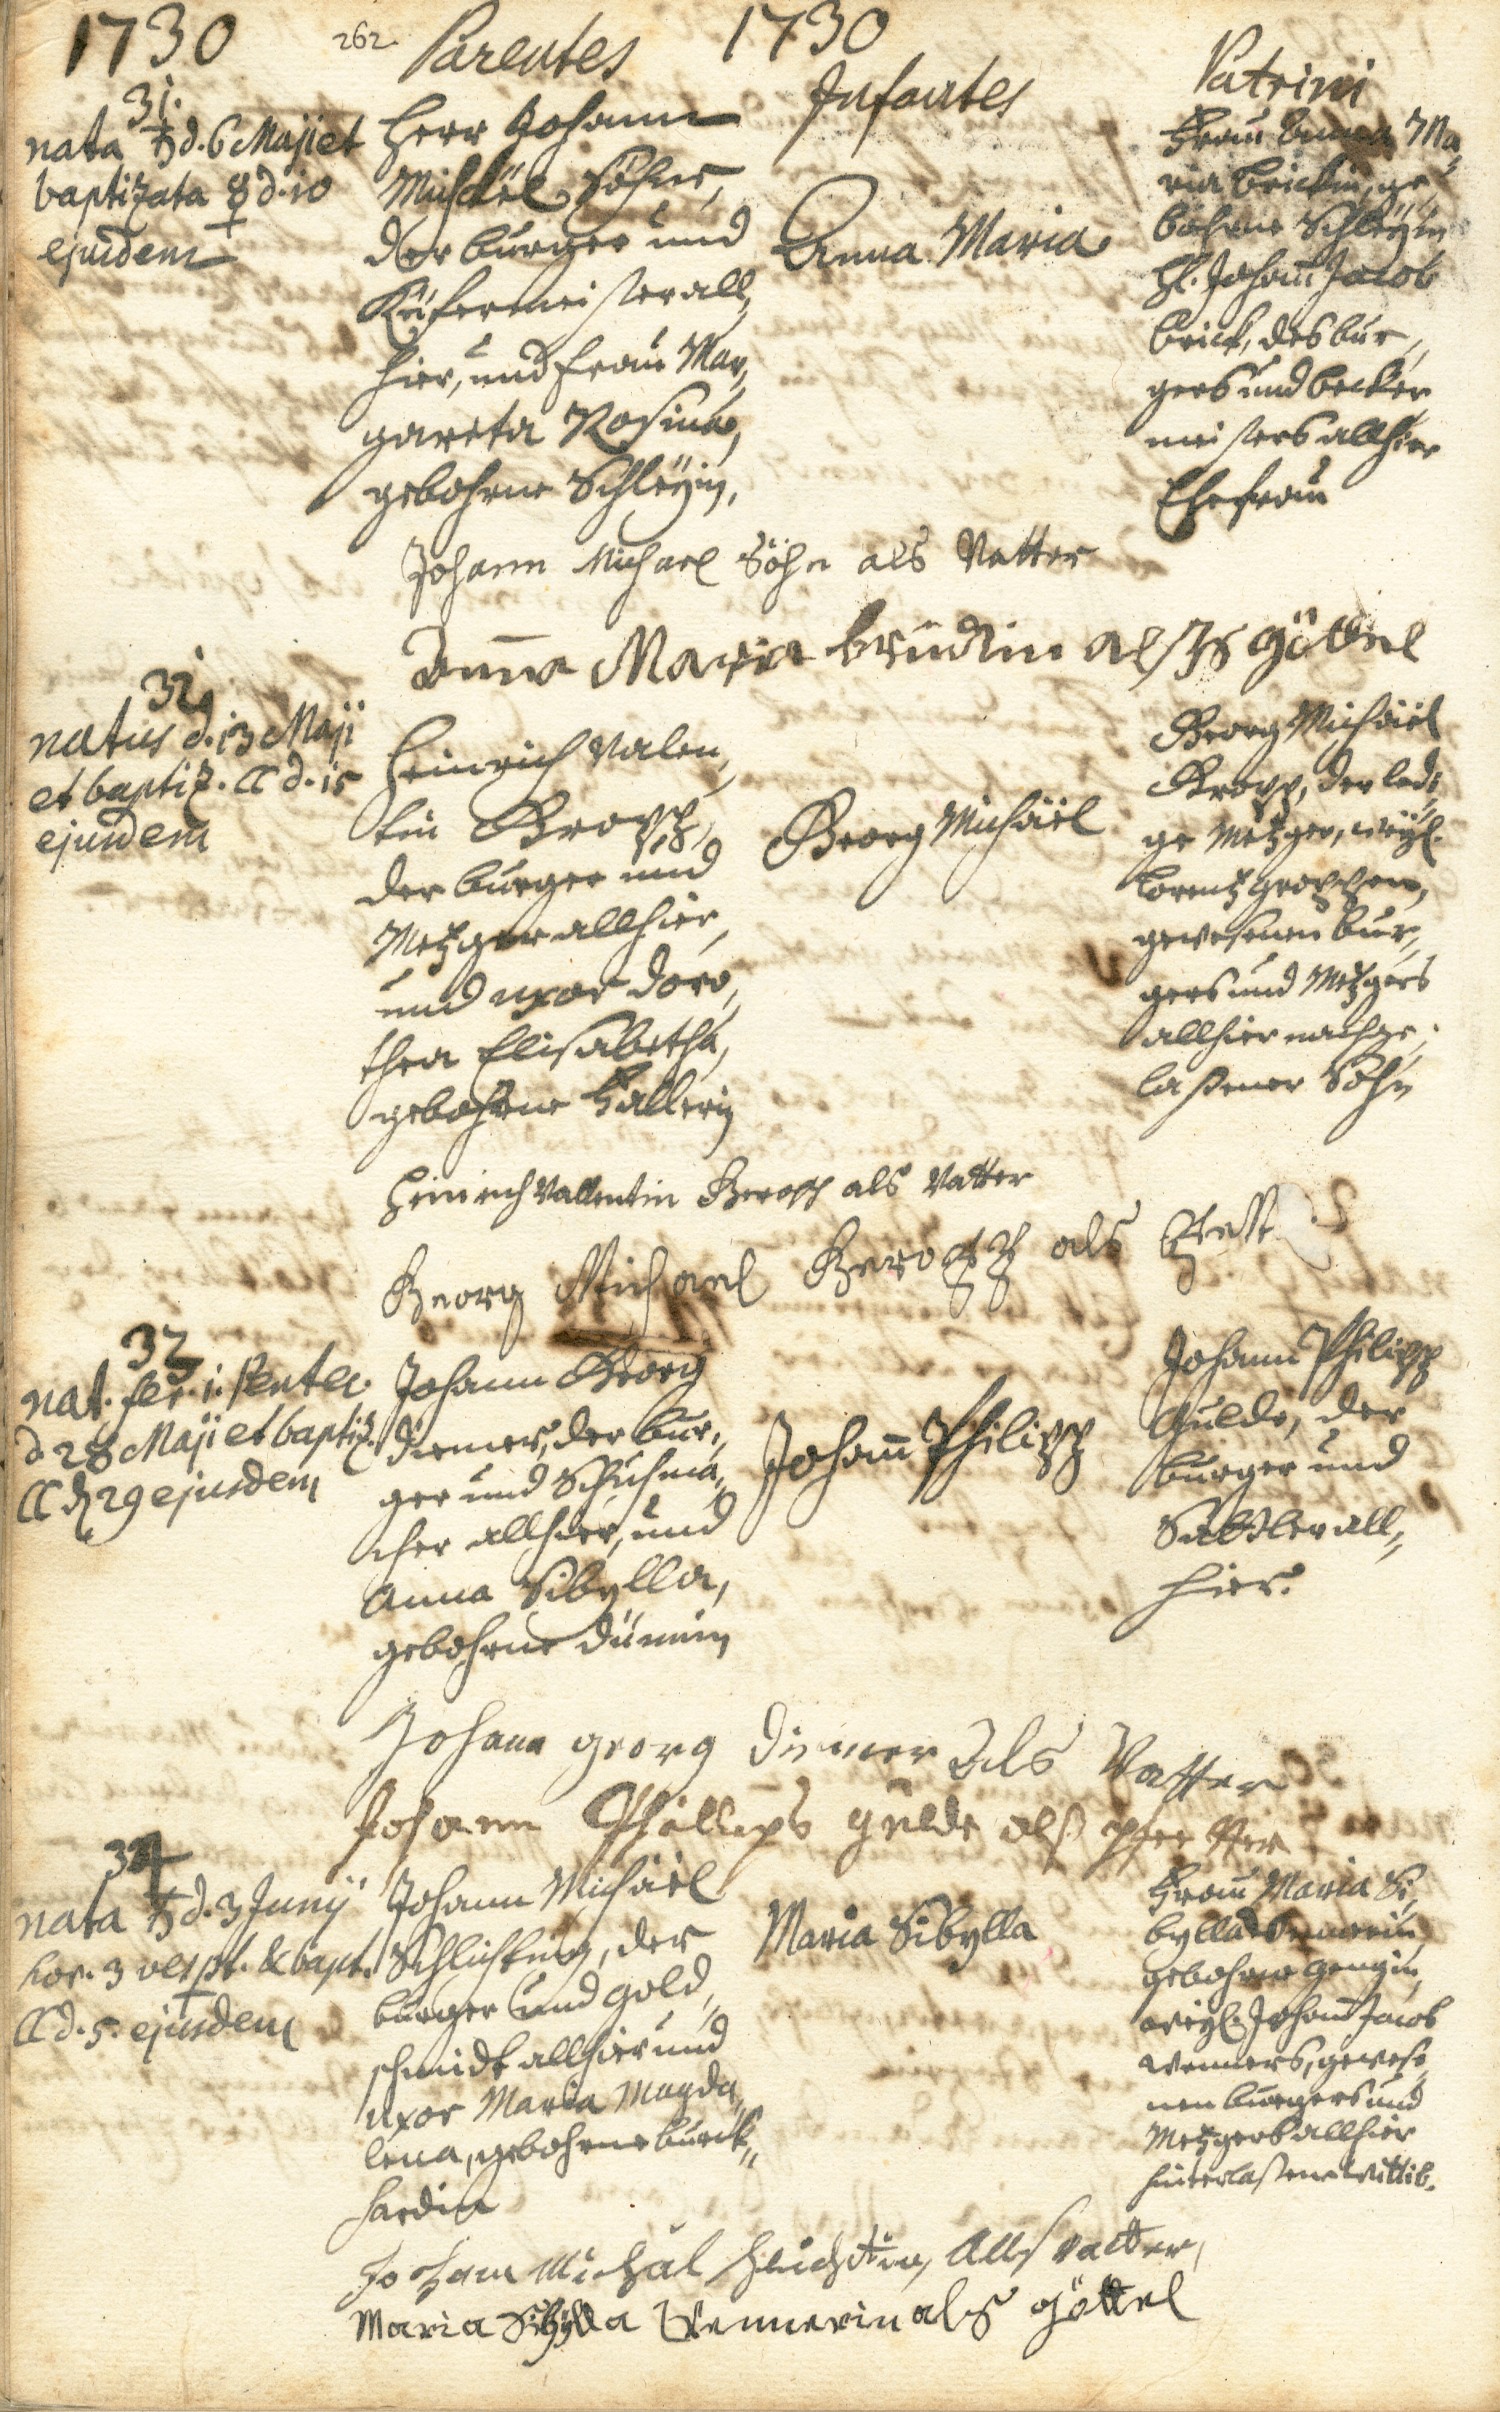 1730 262. Parentes 1730 Infantes Patrini
31.
nata ♄ d. 6 Maji et
baptizata ☿ d. 10
ejusdem
Herr Johann
Michäel Söhne,
der burger und
Küfermeister all„
hier, und Frau Mar„
gareta Rosina,
gebohrne Schleÿin,
Anna Maria
Frau Anna Ma„
ria Brickin, ge„
bohrne Schleÿin
H. Johañ Jacob
Brick, des bur„
gers und becker
meisters allhier
Ehefrau
Johann Michael Söhn als Vatter
Anna Maria als göttel
32
natus d. 13 Maji
et baptiz. ☾ d. 15
ejusdem
Heinrich Valen„
tin Gropp,
der burger und
Metzger allhier,
und uxor Doro„
thea Elisabetha,
gebohrne Hallerin
Georg Michäel
Georg Michäel
Gropp, der ledi
ge Metzger, weÿl.
Lorentz Groppen,
gewesenen bur„
gers und Metzgers
allhier nachge„
laßener Sohn
Heinrich Vallentin Gropp als Vatter
Georg Michael Gropp als
33
nat. fer. 1. Pentec.
d 28 Maji et baptiz.
☾ d. 29 ejusdem
Johann Georg
Diemer, der bur„
ger und Schuhma„
cher allhier, und
Anna Sibylla,
gebohrne Dümin
Johañ Philipp
Johann Philipp
Gulde, der
burger und
Sattler all„
hier.
Johann georg Diemer Als Vatter
Johann Phillips gulde als pfetter
34
nata ♄ d. 3 Junij
hor. 3 vespt. & bapt.
☾ d. 5. ejusdem
Johann Michäel
Schlichting, der
burger und gold„
schmidt allhier und
uxor Maria Magda„
lena, gebohrne burck„
hardin
Maria Sibylla
Frau Maria Si„
bylla Wennerin,
gebohrne
weÿl. Johañ Jacob
Wenners, gewese
nen burgers und
Metzgers allhier
hinterlaßene Wittib.
Johann Michal Schlichting, Alls Vatter,
Maria Sibÿlla Wennerin als göttel